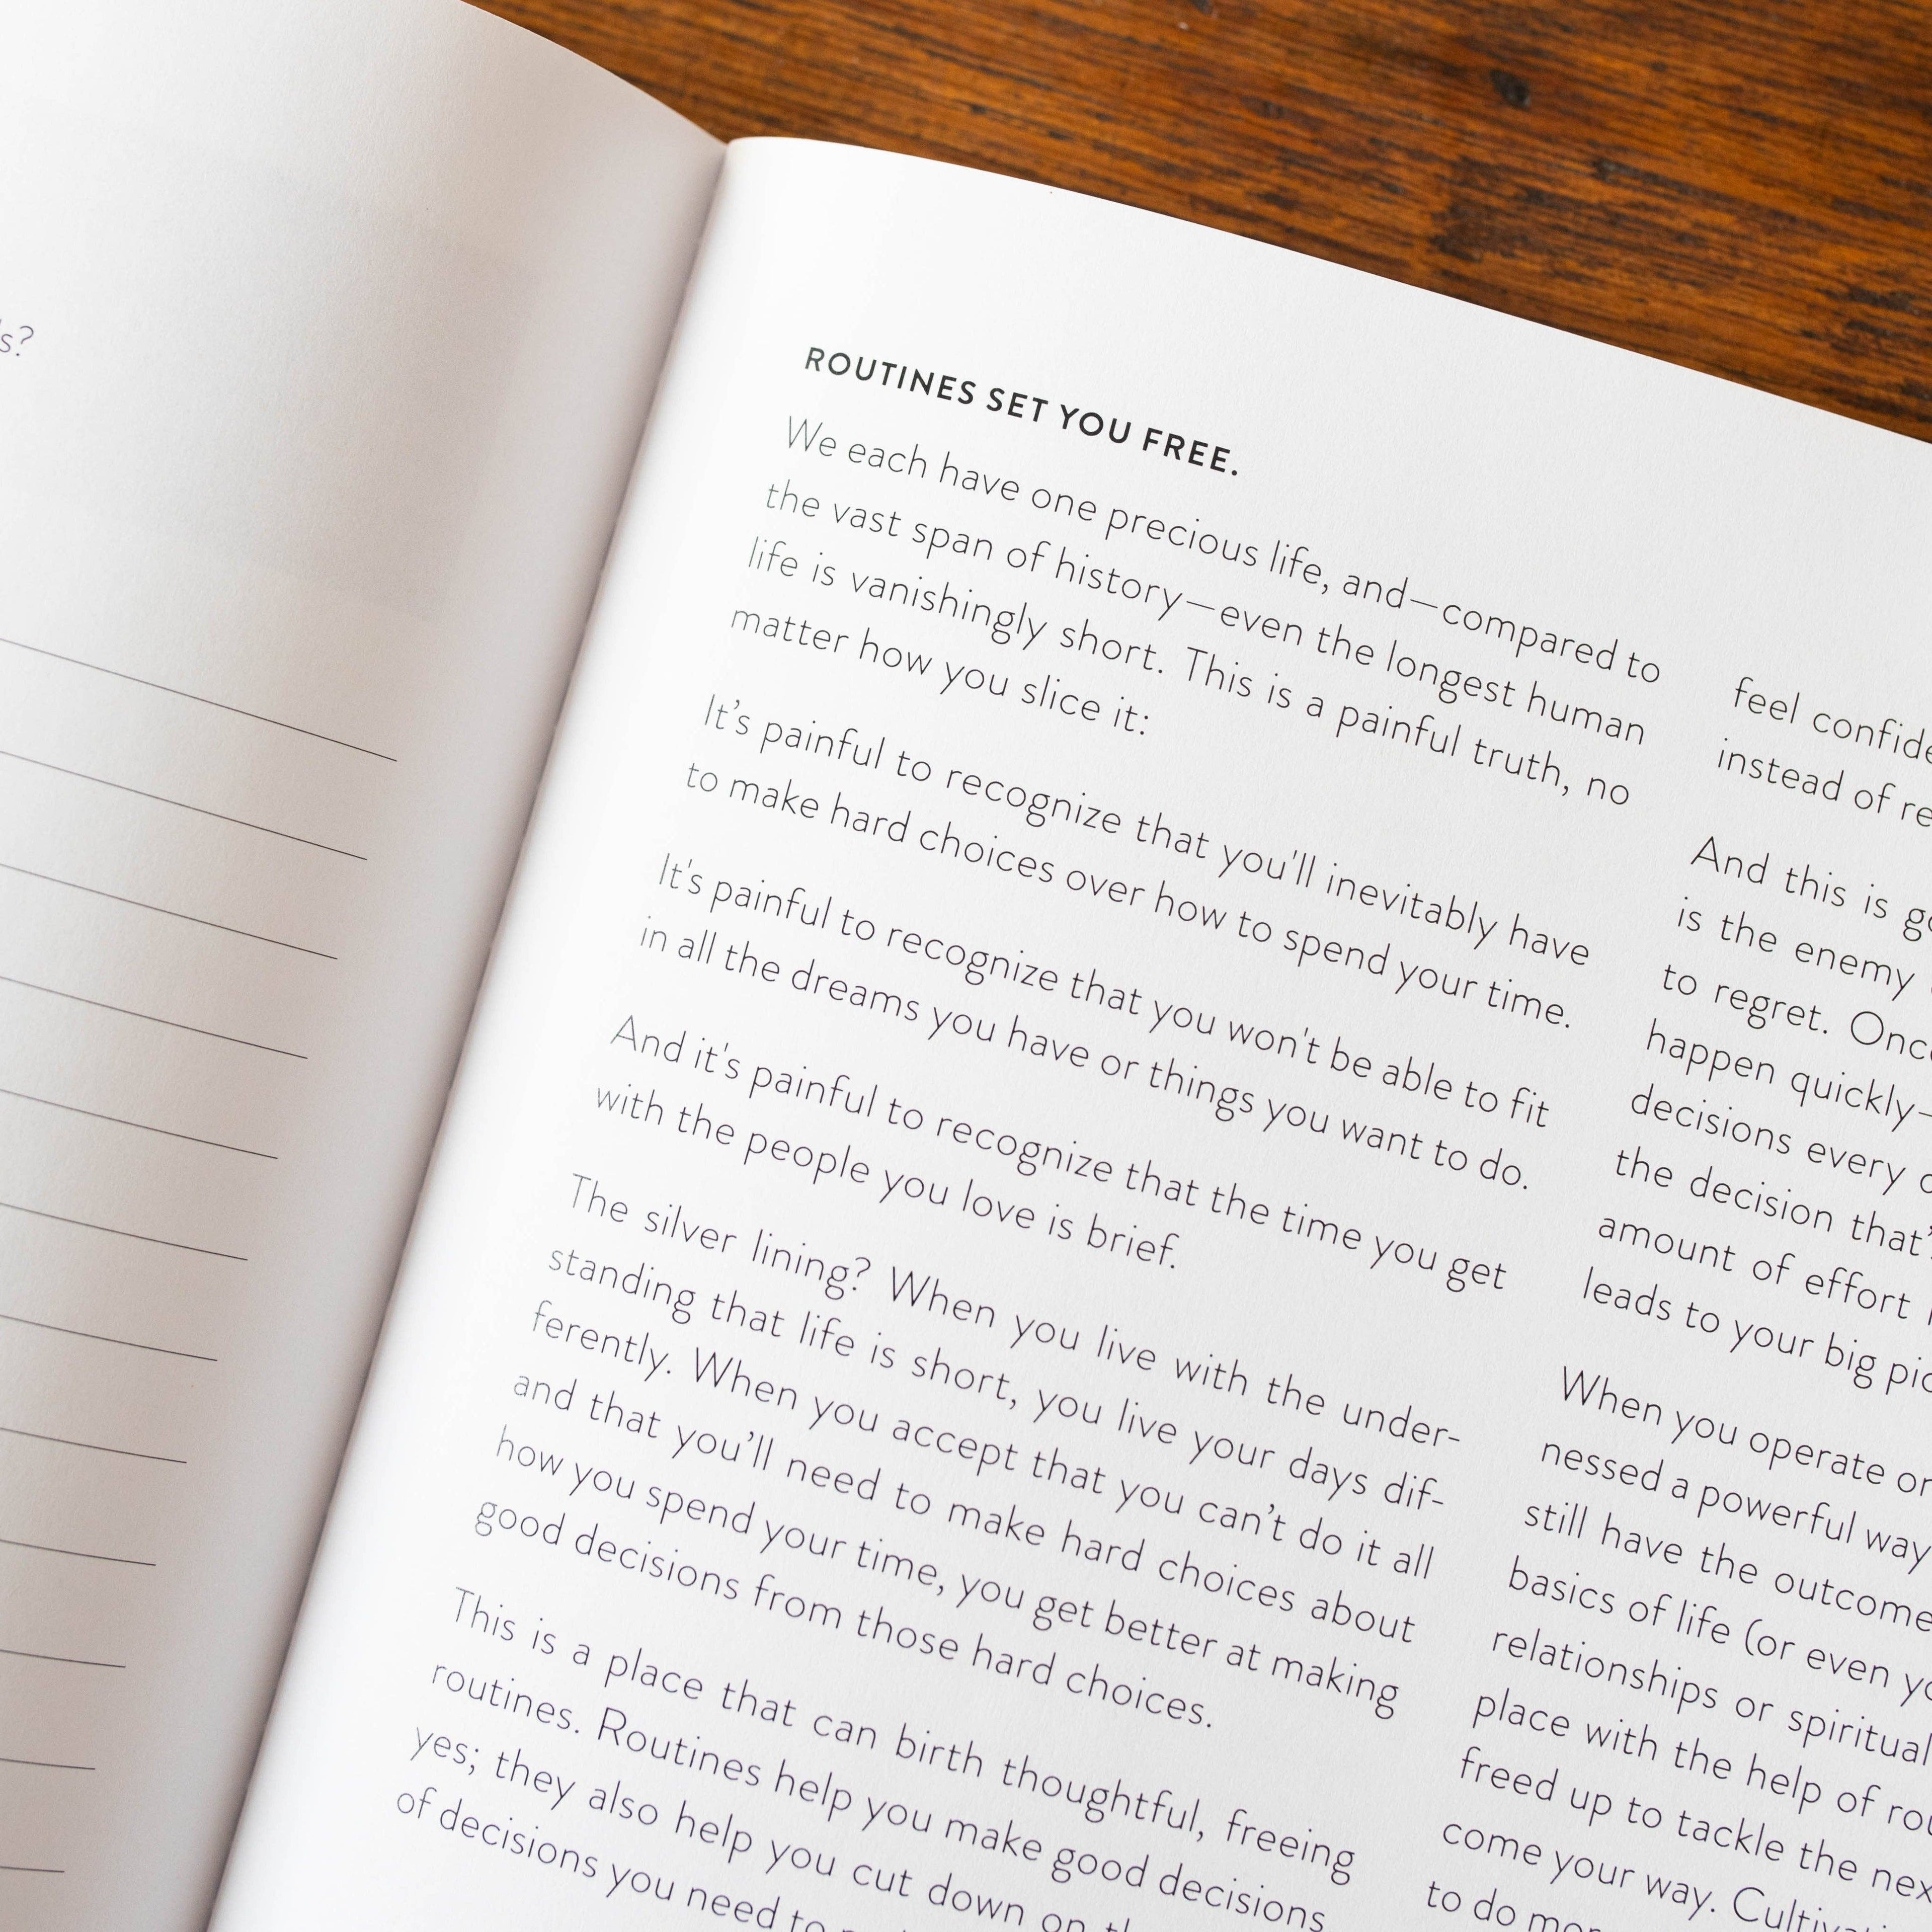 s?
ROUTINES SET YOU FREE.
We each have one precious life, and—compared to
the vast span of history—even the longest human
life is vanishingly short. This is a painful truth, no
matter how you slice it:
It’s painful to recognize that you'll inevitably have
to make hard choices over how to spend your time.
It's painful to recognize that you won't be able to fit
in all the dreams you have or things you want to do.
And it's painful to recognize that the time you get
with the people you love is brief.
The silver lining? When you live with the under-
standing that life is short, you live your days dif-
ferently. When you accept that you can’t do it all
and that you’ll need to make hard choices about
how you spend your time, you get better at making
good decisions from those hard choices.
This is a place that can birth thoughtful, freeing
routines. Routines help you make good decisions
yes; they also help you cut down on
of decisions you need to
feel
instead of
And this is
is the enemy
to regret.
happen quickly—
decisions every
the decision
amount of effort
leads to your big
When you operate
nessed a powerful way
still have the outcome
basics of life (or even
relationships or
place with the help of
freed up to tackle the
come your way.
to do